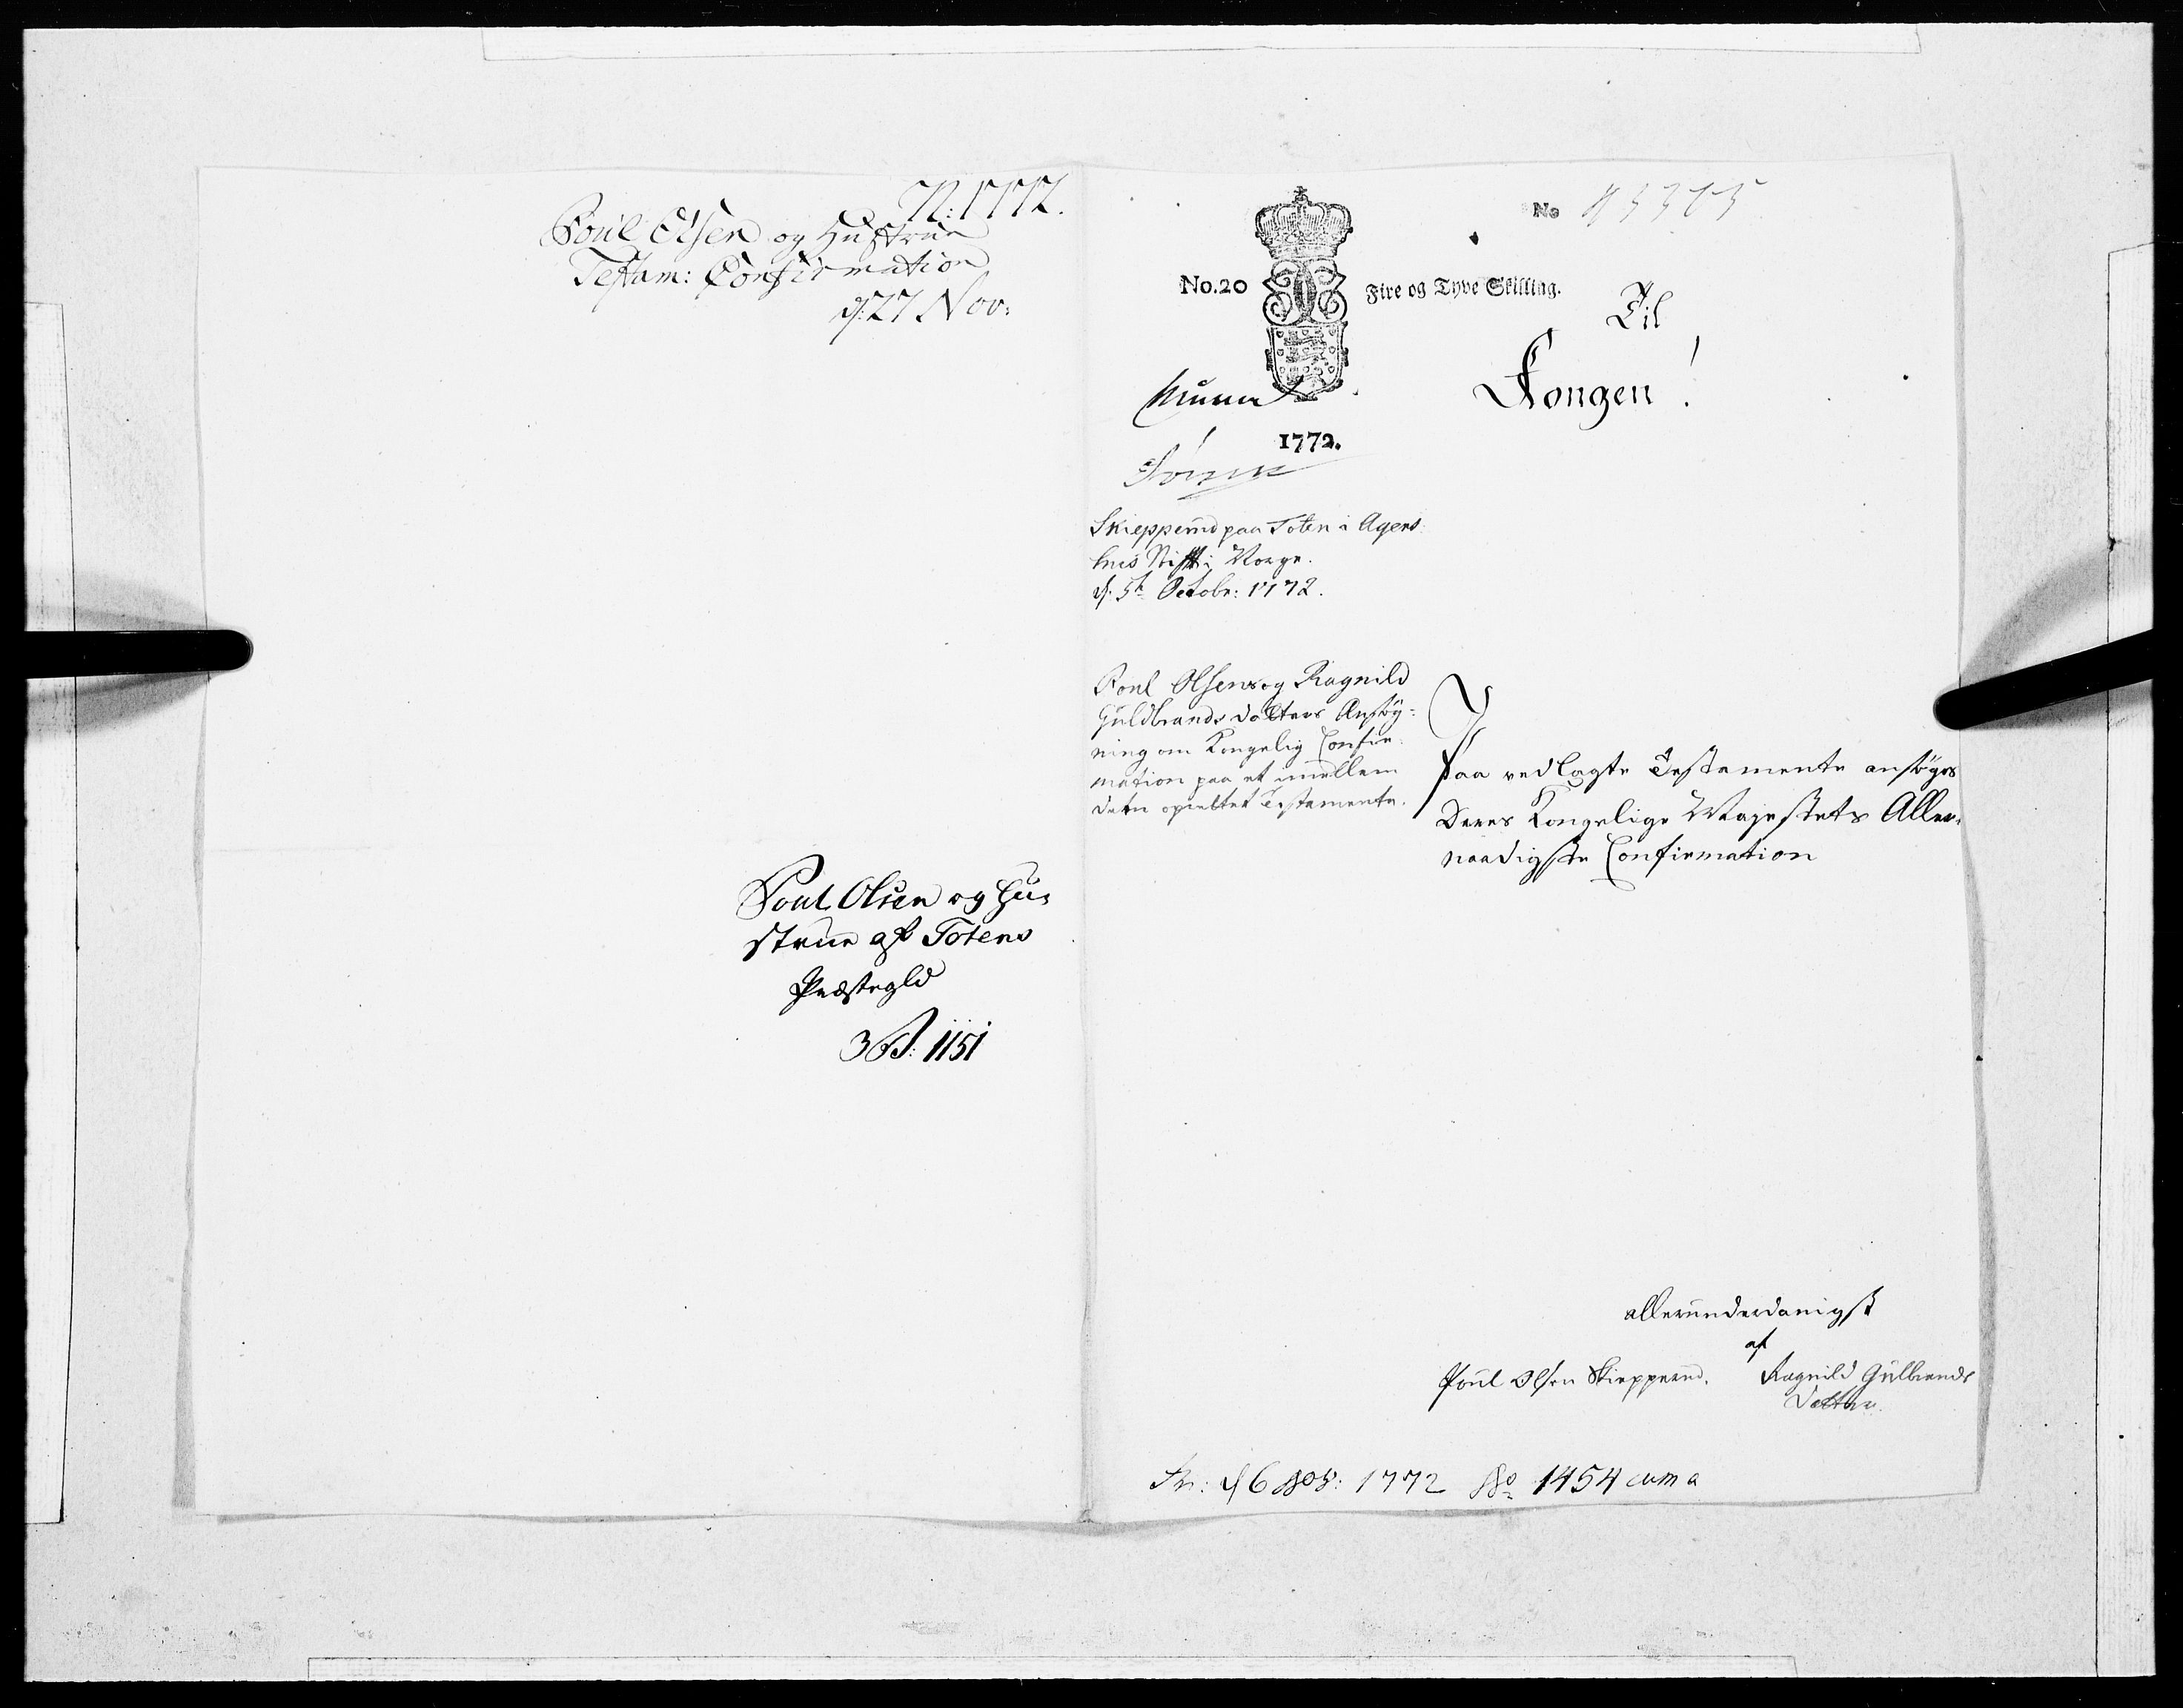 N: 1772.
Poul Olsen og Hustrue
Testam: Confirmation
d: 27 Nov:
Poul Olsen og Hu-
strue af Totens
Præstegld
3 B: 1151
No 43305
No. 20 Fire og Tyve Skilling.
Til
Kongen!
1772.
Skieppernd paa Toten i Agers
huus Stift i Norge.
d. 5t Octobr: 1772.
Poul Olsens og Ragnild
Guldbrands datters Ansøg-
ning om Kongelig Confir-
mation paa et imellem
dem oprettet Testamente.
Paa vedlagte Testamente ansøges
Deres Kongelige Majestets Aller-
naadigste Confirmation
allerunderdanigst
af
Poul Olsen Skieppernd. Ragnild Gulbrands
Datter.
Pr: d 6 Nov: 1772 No 1454 cum a